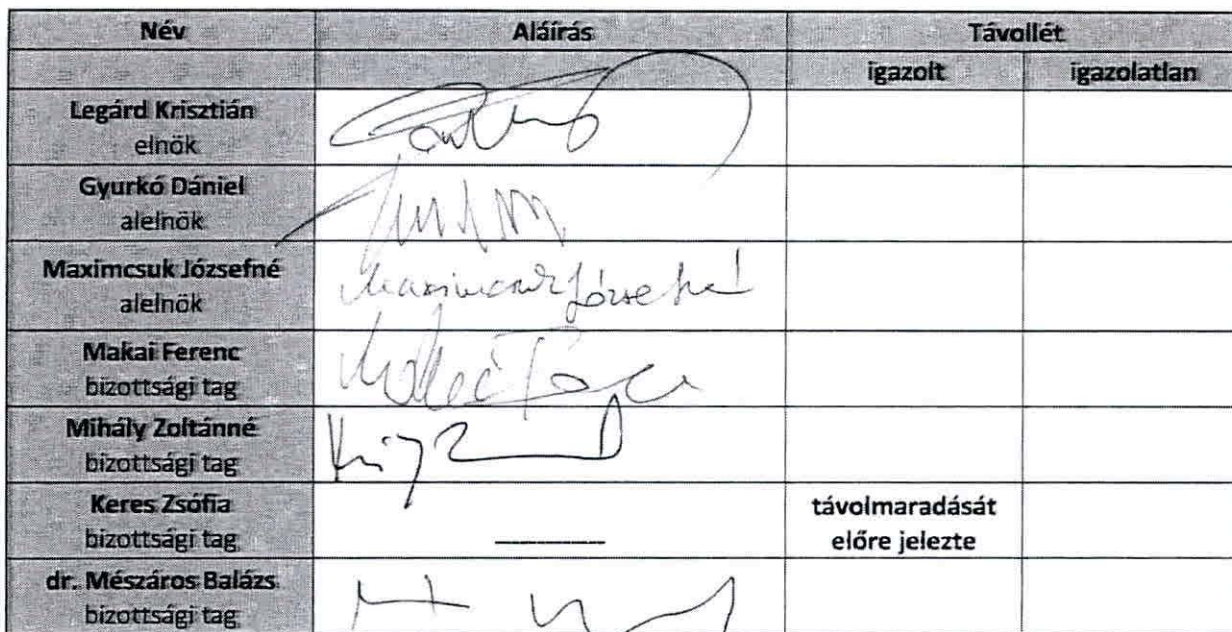 Név Aláírás Távollét
igazolt igazolatlan
Legárd Krisztián
elnök
Gyurkó Dániel
alelnök
Maximcsuk Józsefné
alelnök
Maximcsuk Józsefné
Makai Ferenc
bizottsági tag
Makai Ferenc
Mihály Zoltánné
bizottsági tag
Keres Zsófia
bizottsági tag
távolmaradását
előre jelezte
dr. Mészáros Balázs
bizottsági tag